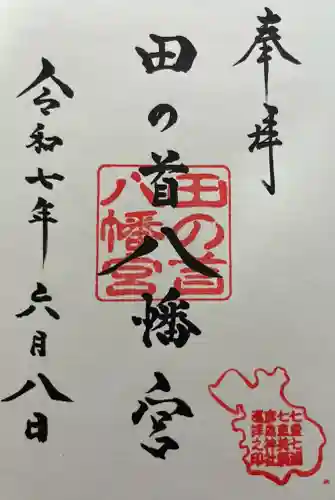 奉拝
田の首八幡宮
令和七年六月八日
田の首
八幡宮